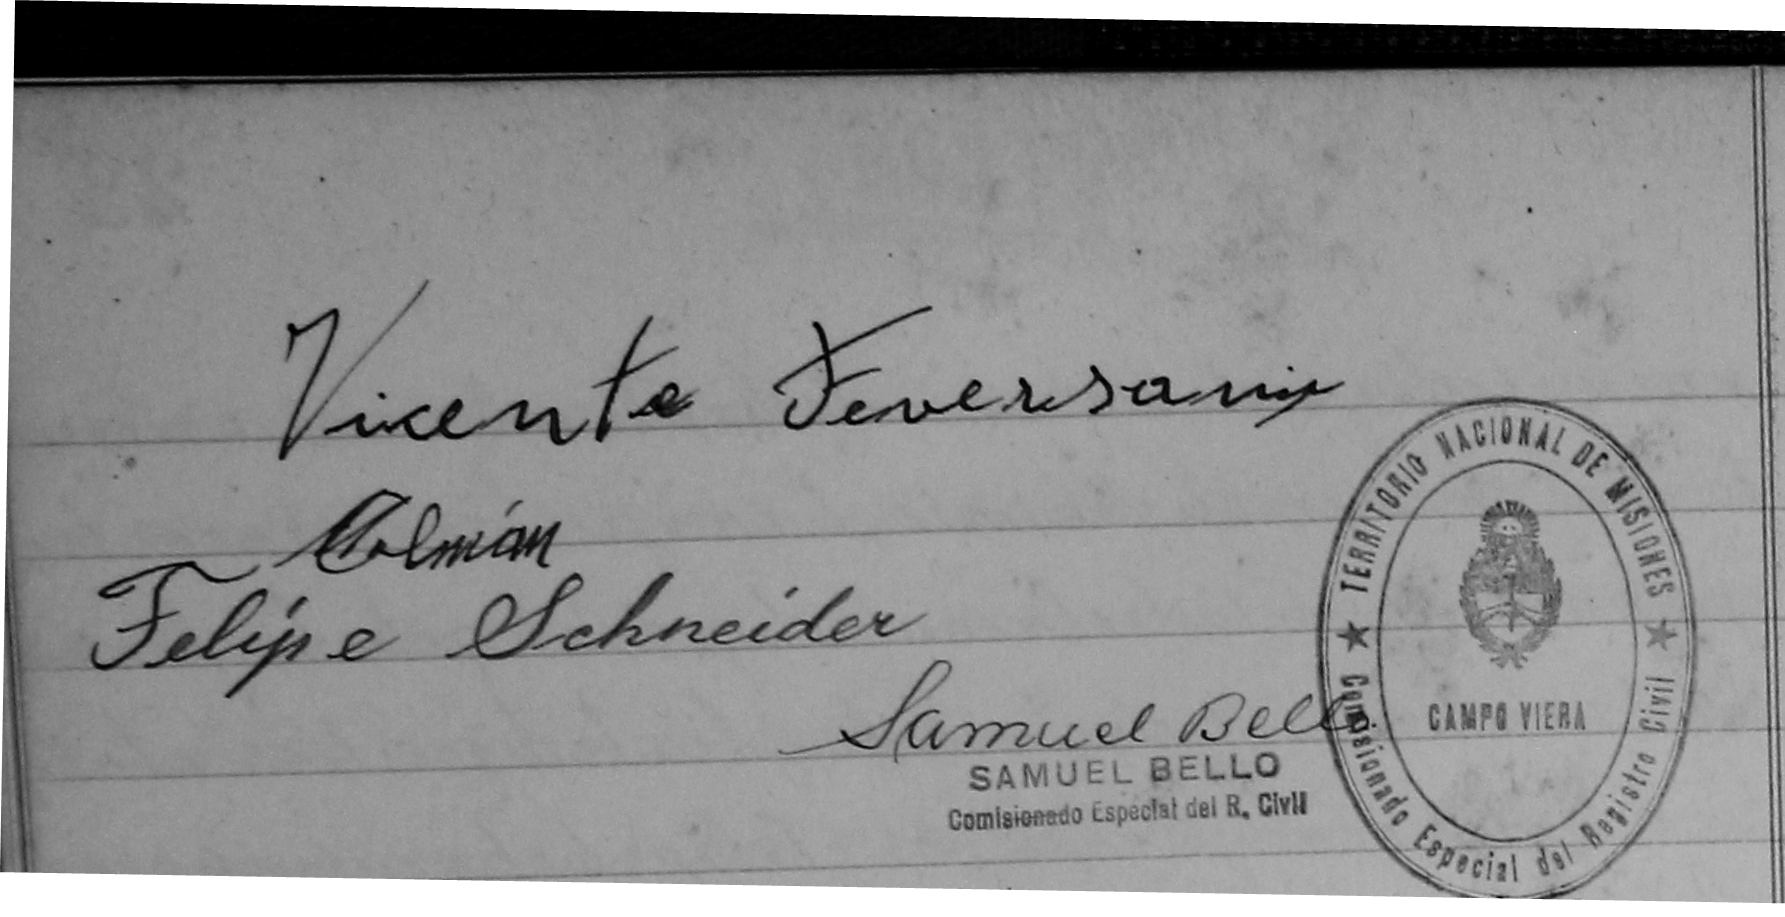 Vicente Feversani
Colmán
Felipe Schneider
Samuel Bello
SAMUEL BELLO
Comisionado Especial del R. Civil
TERRITORIO NACIONAL DE MISIONES
CAMPO VIERA
Comisionado Especial del Registro Civil